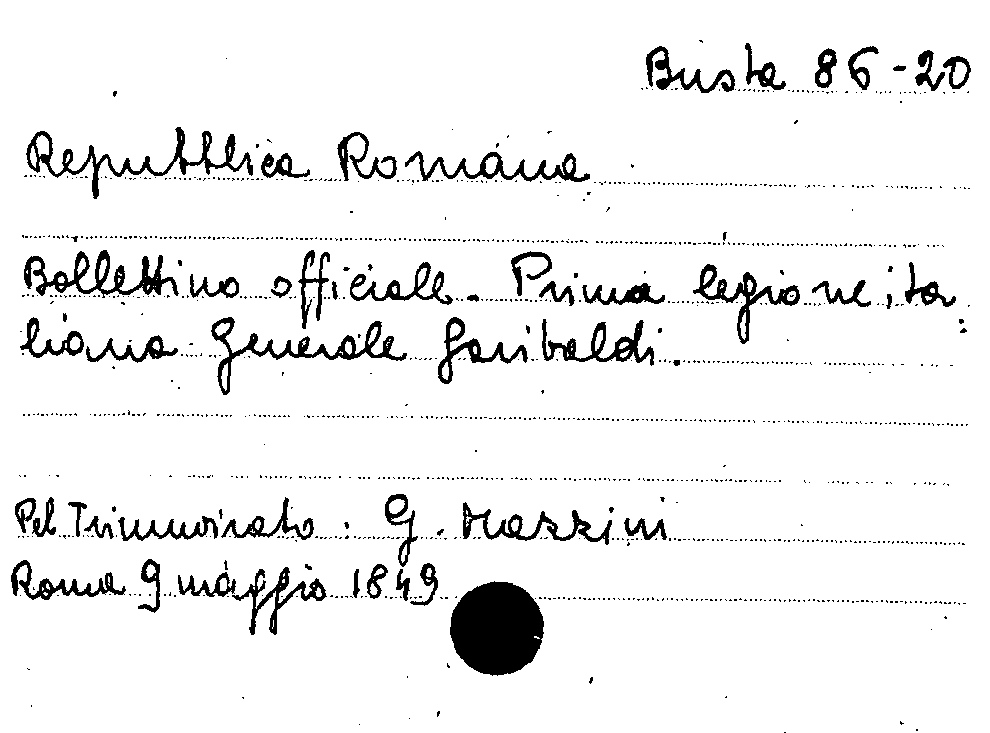 Busta 86-20
Repubblica Romana
Bollettino officiale. Prima legione ita
liana Generale Garibaldi.
Pel Triumvirato: G. Mazzini
Roma 9 maggio 1849